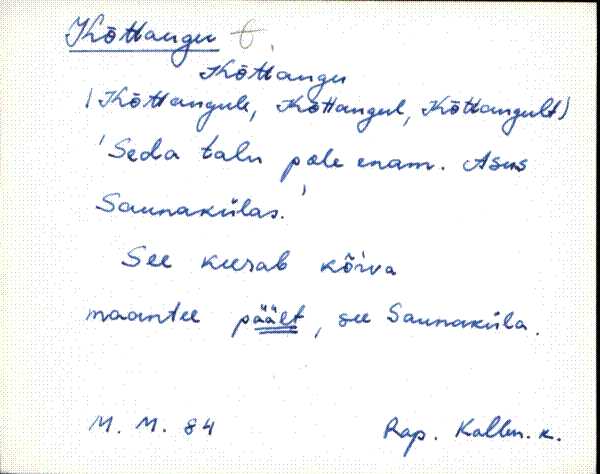 Kõttangu t.
Kõttangu
(Kõttangule, Kõttangul, Kõttangult)
'Seda talu pole enam. Asus
Saunakülas.'
See keerab kõiva
maantee päält, see Saunaküla.
M. M. 84
Rap. Kallm. k.